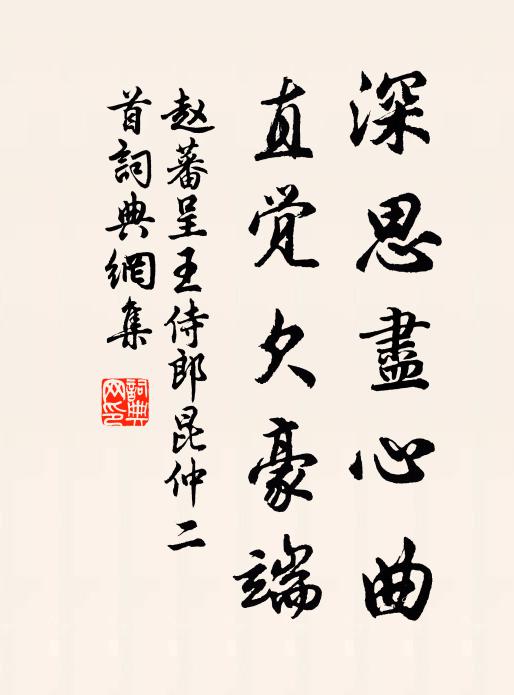 深思盡心曲
直觉欠豪端
赵蕃呈王侍郎昆仲二
首詞典網集
詞典
网印